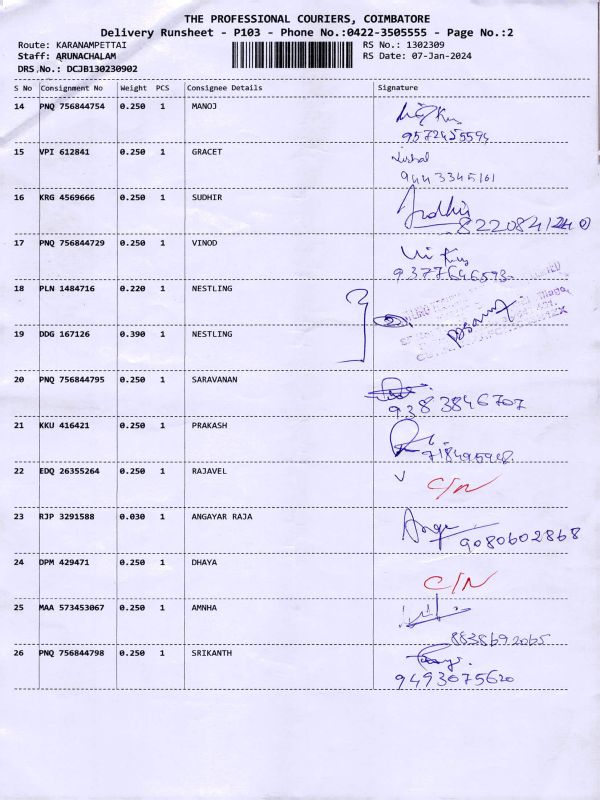 THE PROFESSIONAL COURIERS, COIMBATORE
Delivery Runsheet - P103 - Phone No.:0422-3505555 - Page No.:2
Route: KARANAMPETTAI RS No.: 1302309
Staff: ARUNACHALAM RS Date: 07-Jan-2024
DRS No.: DCJB130230902
S No Consignment No Weight PCS Consignee Details Signature
14 PNQ 756844754 0.250 1 MANOJ
9572455594
15 VPI 612841 0.250 1 GRACET
9443345161
16 KRG 4569666 0.250 1 SUDHIR Sudhir
8220841240
17 PNQ 756844729 0.250 1 VINOD
9377646593
18 PLN 1484716 0.220 1 NESTLING
19 DDG 167126 0.390 1 NESTLING
20 PNQ 756844795 0.250 1 SARAVANAN
9383846707
21 KKU 416421 0.250 1 PRAKASH
718495948
22 EDQ 26355264 0.250 1 RAJAVEL C/N
23 RJP 3291588 0.030 1 ANGAYAR RAJA
9080602868
24 DPM 429471 0.250 1 DHAYA C/N
25 MAA 573453067 0.250 1 AMNHA
8838692065
26 PNQ 756844798 0.250 1 SRIKANTH
9493075620